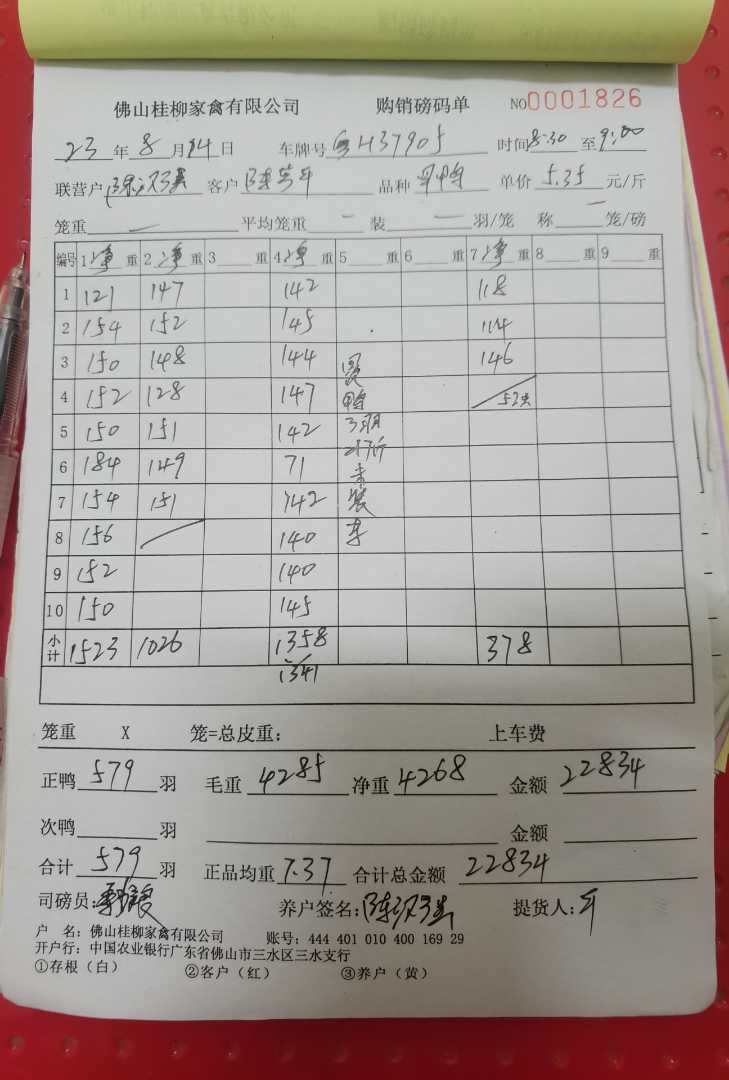 佛山桂柳家禽有限公司 购销磅码单 NO0001826
23年8月14日 车牌号 H37905 时间8:30至9:00
联营户 客户 品种 单价5.35元/斤
笼重 — 平均笼重 — 装 — 羽/笼 称 — 笼/磅
编号 1净重 2净重 3重 4净重 5重 6重 7净重 8重 9重
1 121 147 142 118
2 154 152 145 114
3 150 148 144 146
4 152 128 147 鸭 52只
5 150 151 142 3羽
6 184 149 71 17斤 未
7 154 151 142 装
8 156 140 车
9 152 140
10 150 145
小计 1523 1026 1358 378
1341
笼重 X 笼=总皮重: 上车费
正鸭579羽 毛重4285 净重4268 金额22834
次鸭 羽 金额
合计579羽 正品均重7.37 合计总金额22834
司磅员: 养户签名: 提货人:
户 名: 佛山桂柳家禽有限公司 账号: 444 401 010 400 169 29
开户行: 中国农业银行广东省佛山市三水区三水支行
①存根(白) ②客户(红) ③养户(黄)